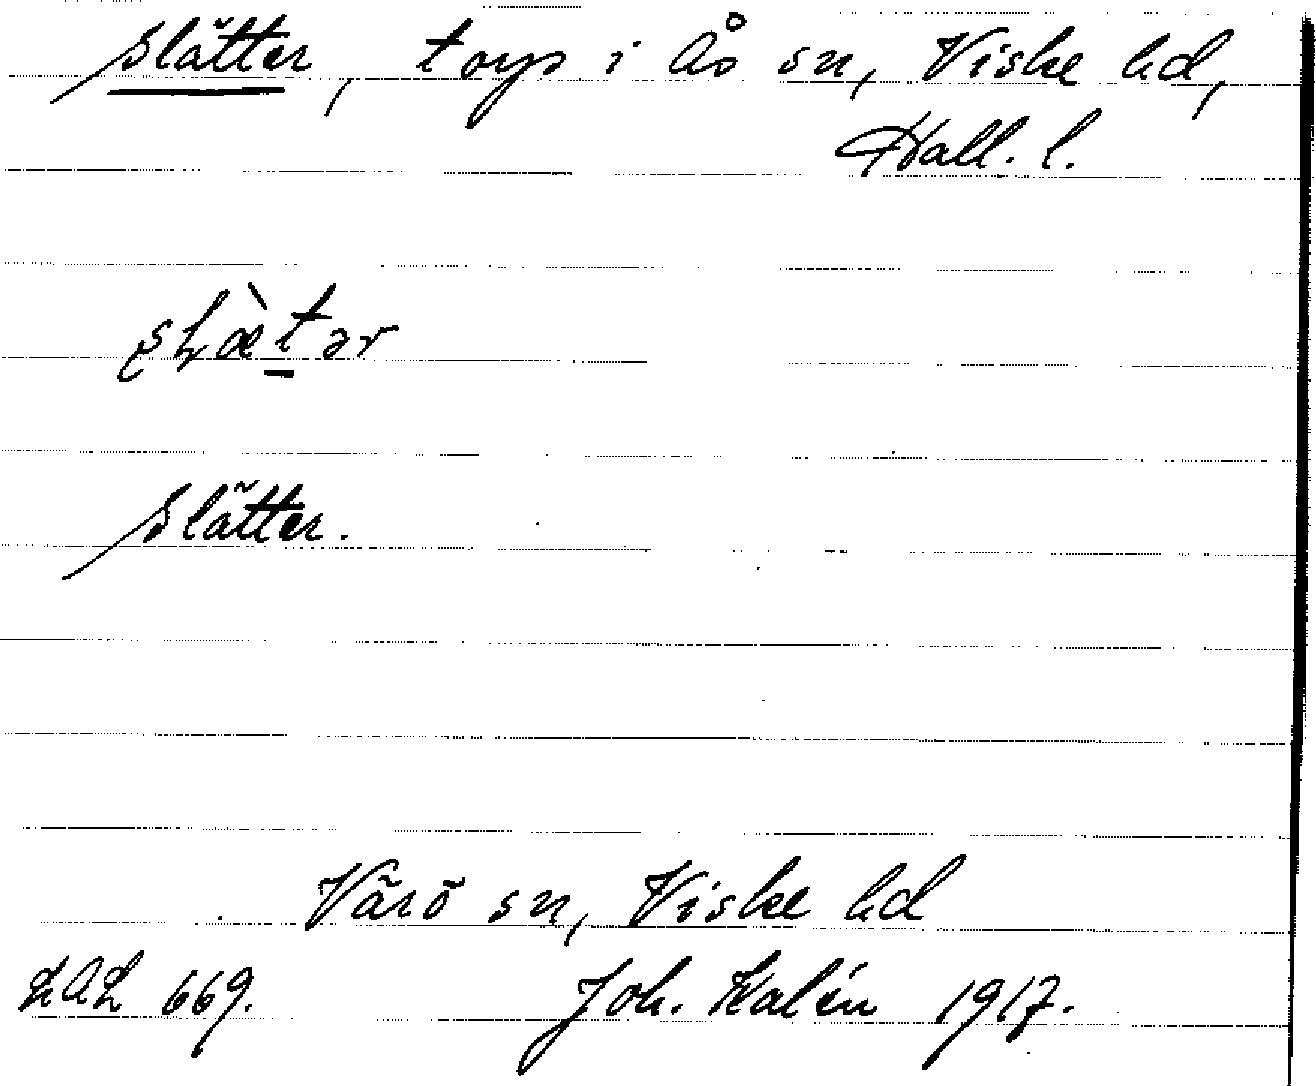 Slätter, torp i Ås sn, Viske hd,
Hall. l.
Slätter.
Värö sn, Viske hd
LAL 669. Joh. Kalén 1917.